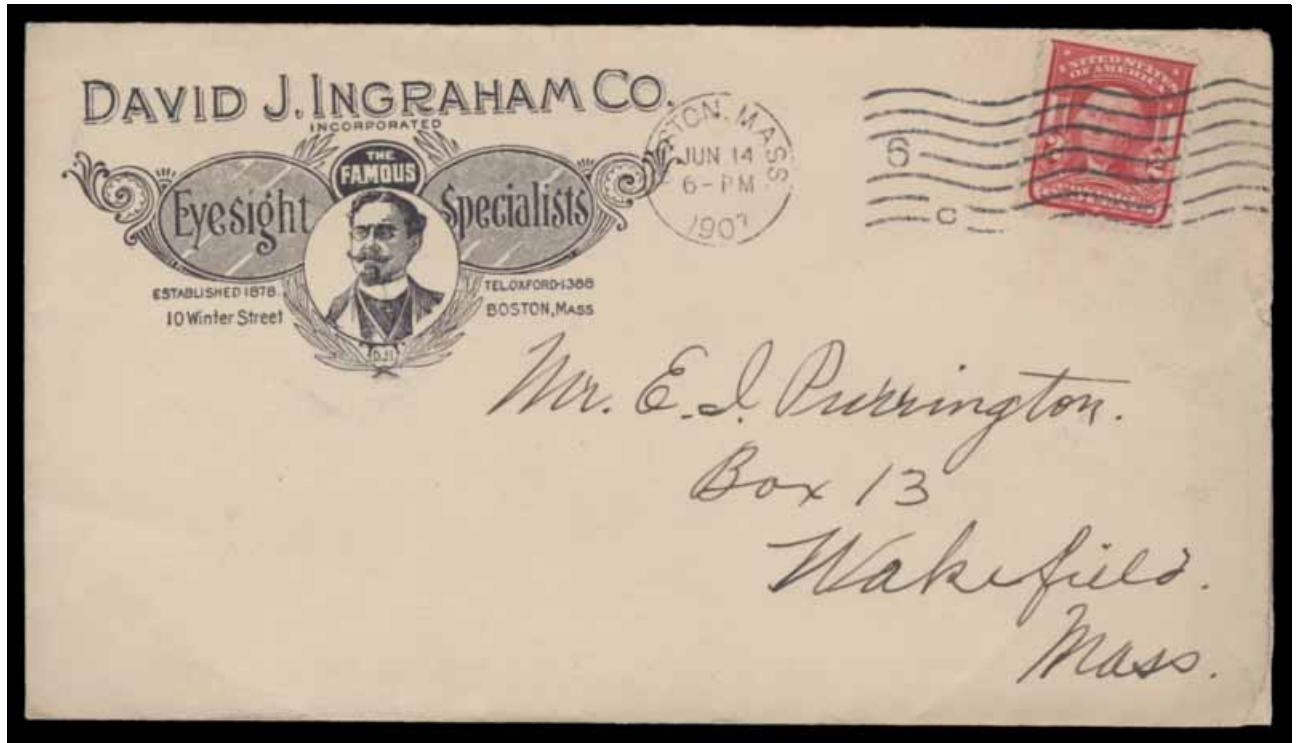 DAVID J. INGRAHAM CO.
INCORPORATED
THE
FAMOUS
Eyesight Specialists
ESTABLISHED 1878.
10 Winter Street
TEL. OXFORD-1388
BOSTON, MASS
DJI
BOSTON, MASS
JUN 14
6-PM
1907
6
C
UNITED STATES
OF AMERICA
2 2
Mr. E. I. Purrington.
Box 13
Wakefield.
Mass.